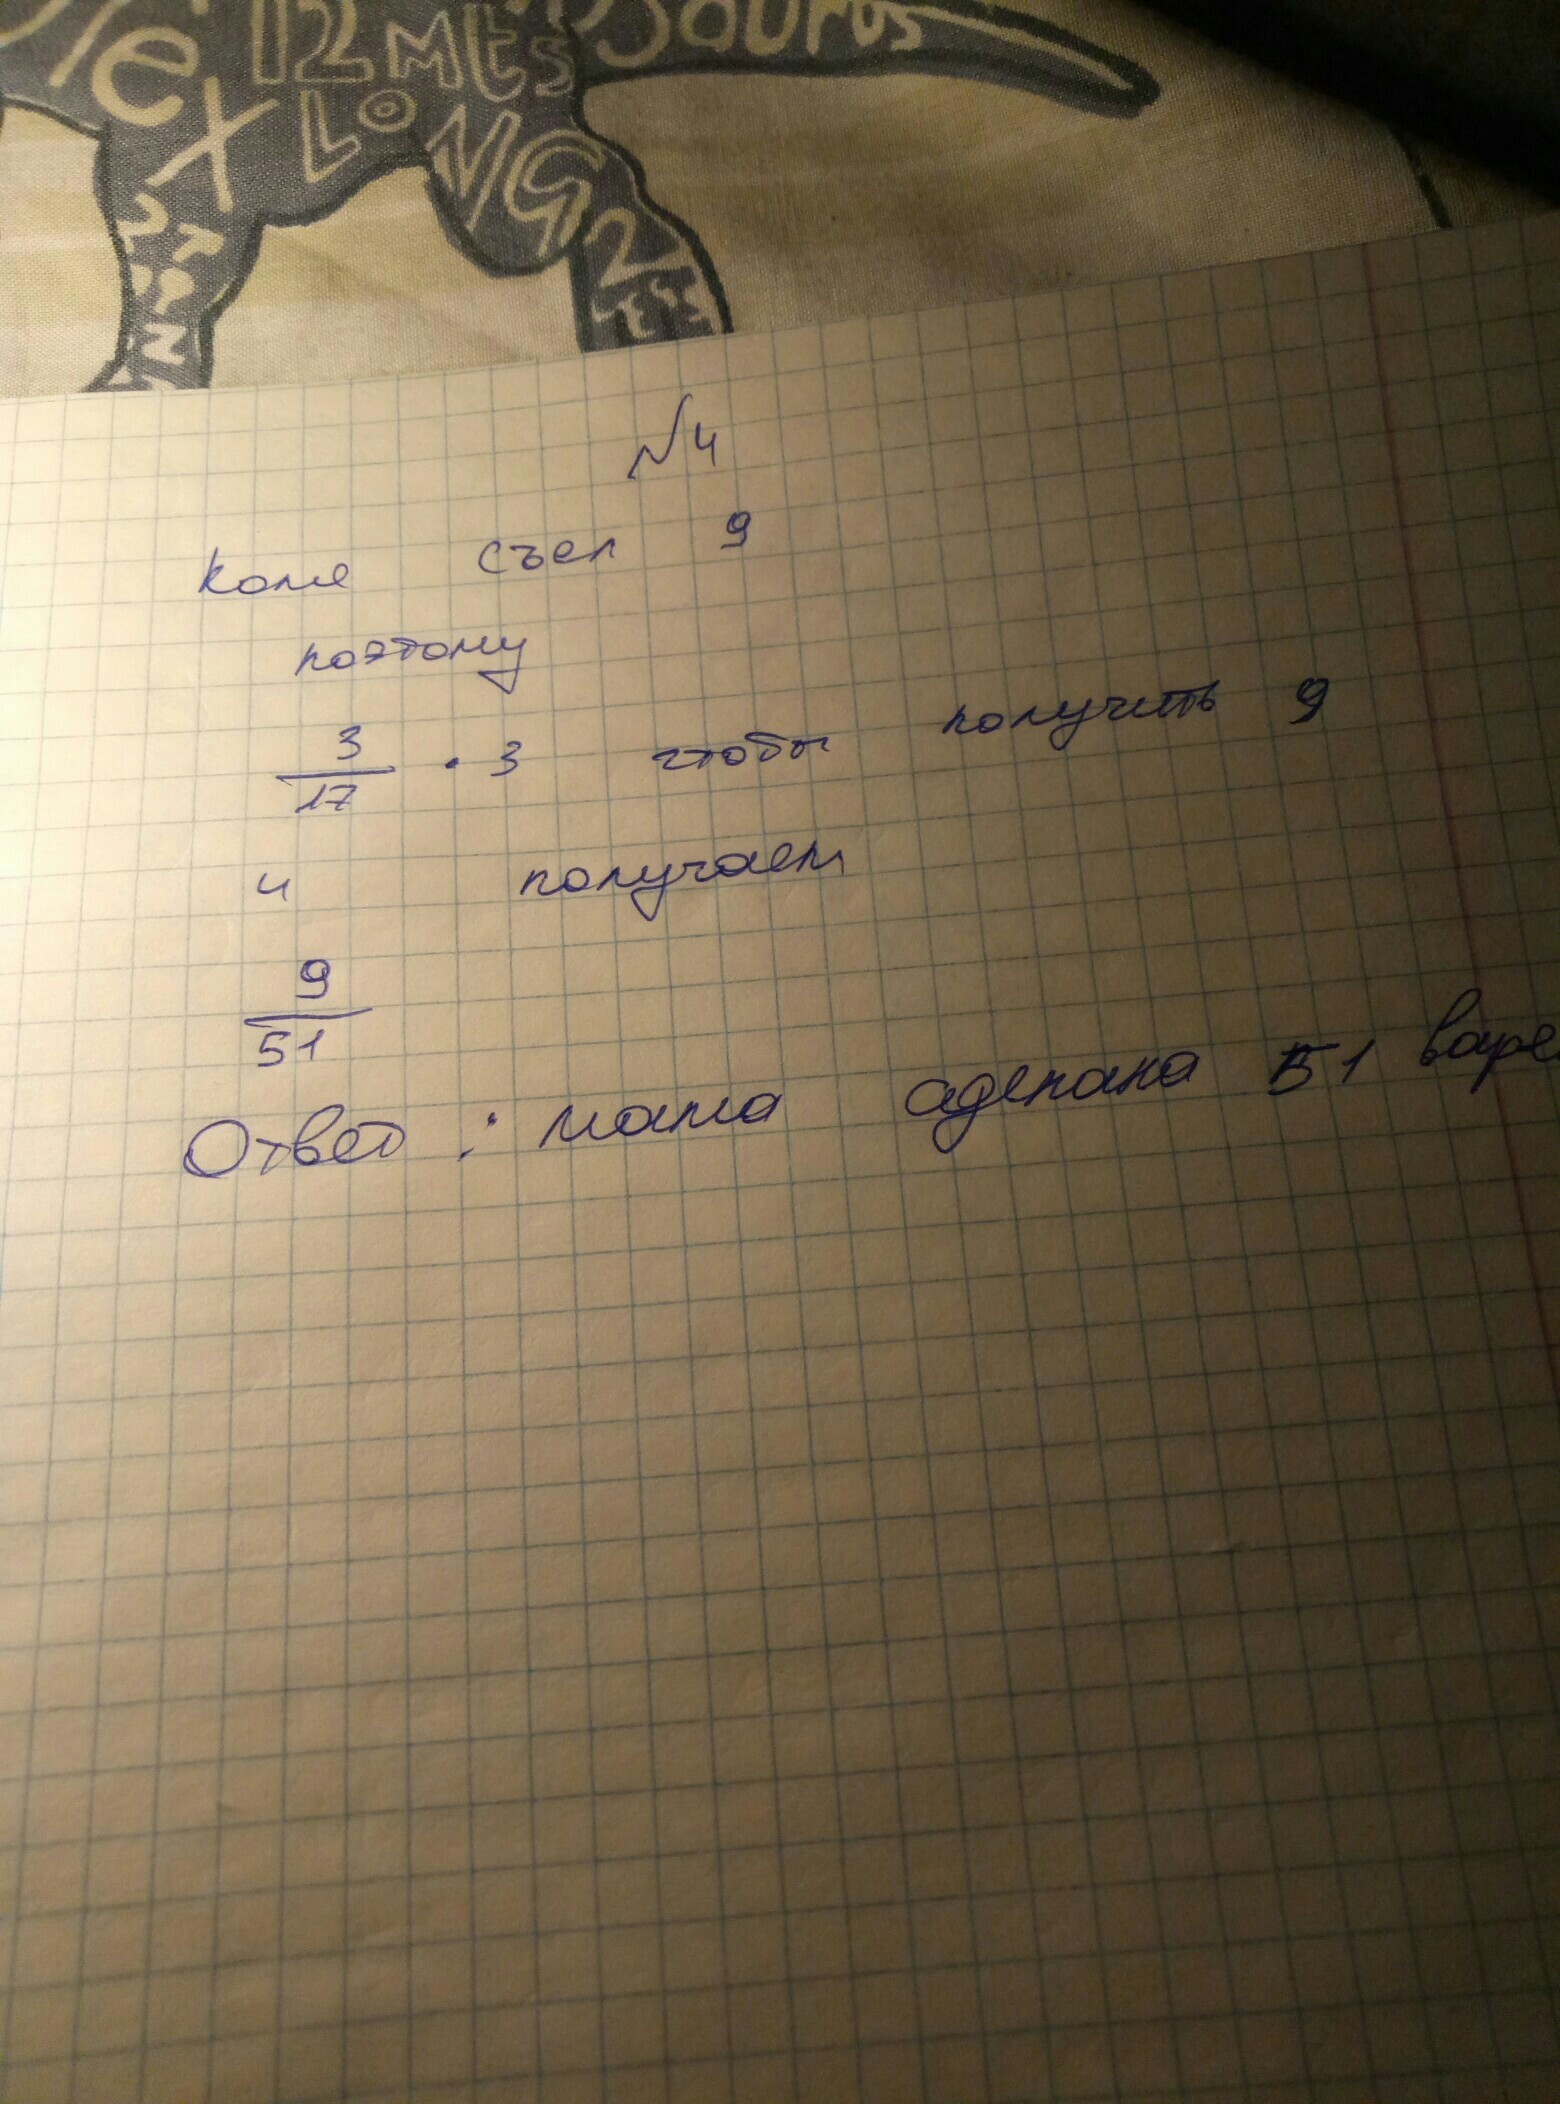 ex 12 Mts saurus
LONG
№4
Коля съел 9
поэтому
3/17 · 3 чтобы получить 9
и получаем
9/51
Ответ: мама сделала 51 варе